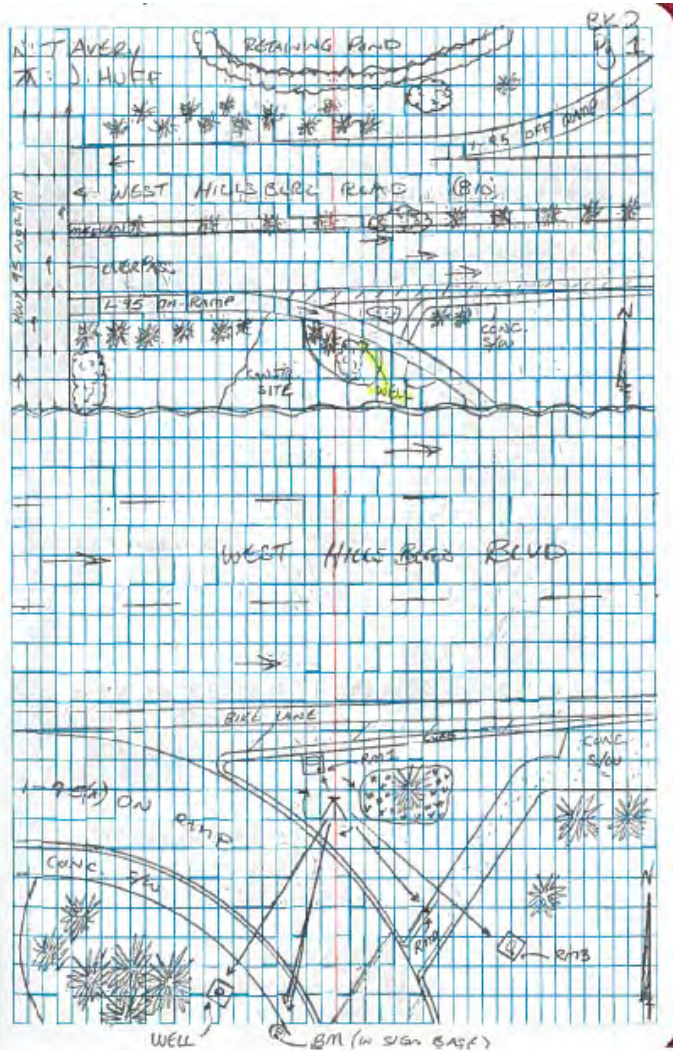 BK 2
Pg 1
N: T AVERY
⊼: J. HUFF
RETAINING POND
I-95 OFF RAMP
← WEST HILLSBORO ROAD (810)
MEDIAN
HWY 95 NORTH
OVERPASS
I-95 ON-RAMP
CONC.
S/W
CONST.
SITE
WELL
N
WEST HILLSBORO BLVD
BIKE LANE
CURB
RM1
CONC.
S/W
I-95(N) ON RAMP
CONC. S/W
N
RM2
RM3
WELL
BM (IN SIGN BASE)